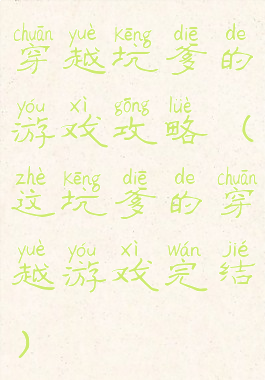 chuān yuè kēng diē de
穿越坑爹的
yóu xì gōng lüè
游戏攻略（
zhè kēng diē de chuān
这坑爹的穿
yuè yóu xì wán jié
越游戏完结
）